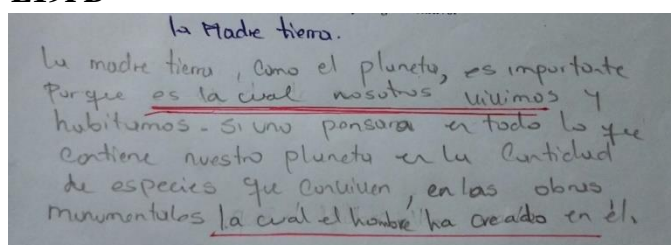 la Madre tierra.
La madre tierra, como el planeta, es importante
porque es la cual nosotros vivimos y
habitamos. Si uno pensara en todo lo que
contiene nuestro planeta en la cantidad
de especies que conviven, en las obras
munumentales la cuál el hombre ha creado en él.